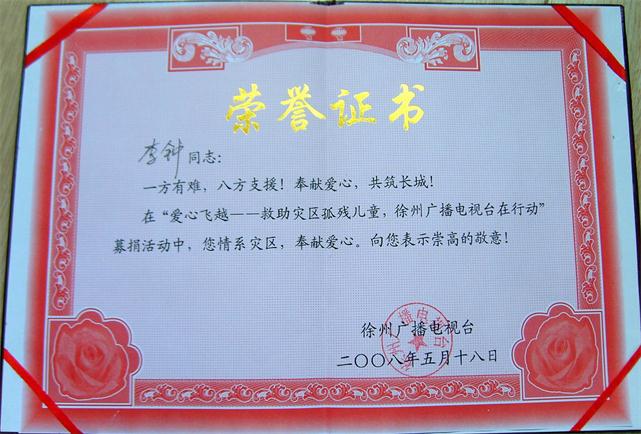 荣誉证书
李钟同志：
一方有难，八方支援！奉献爱心，共筑长城！
在“爱心飞越——救助灾区孤残儿童，徐州广播电视台在行动”
募捐活动中，您情系灾区，奉献爱心。向您表示崇高的敬意！
徐州广播电视台
二〇〇八年五月十八日
徐州广播电视台